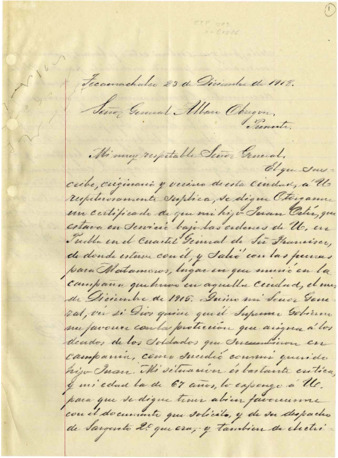 1
Tecamachalco 23 de Diciembre de 1918.
Señor General Alvaro Obregon.
Presente.
Mi muy respetable Señor General.
El que sus-
cribe, originario y vecino de esta ciudad, a U.
respetuosamente suplica, se digne Otorgarme
un certificado de que mi hijo Juan, que
estava en Servicio bajo las ordenes de U. en
Puebla en el Cuartel General de San Francisco,
de donde estuve con él, y Salió con las fuerzas
para Matamoros, lugar en que murió en la
campaña que tuvo en aquella Ciudad, el mes
de Diciembre de 1915. Quiero mi Señor Gene-
ral, vér si Dios quiere que el Supremo Gobierno
me favorece con la protección que asigna á los
deudos de los Soldados que Sucumbieron en
campaña, como Sucedió con mi querido
hijo Juan. Mi situación es bastante critica,
y mi edad la de 67 años, lo expongo á U.
para que se digne tener abien favorecerme
con el documento que solicito, y de su despacho
de Sargento 2º que era; y tambien de